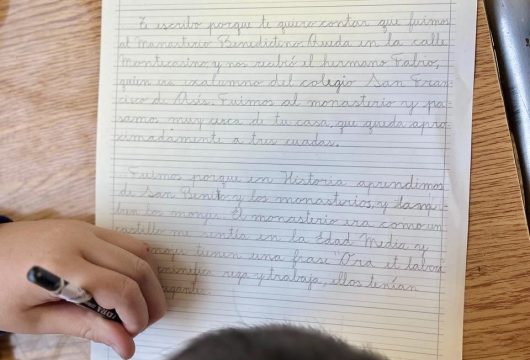 Te escribo porque te quiero contar que fuimos
al Monasterio Benedictino. Queda en la calle
Montecasino, y nos recibió el hermano Pablo,
quien era exalumno del colegio San Fran-
cisco de Asís. Fuimos al monasterio y pa-
samos muy cerca de tu casa, que queda apro-
ximadamente a tres cuadas.
Fuimos porque en Historia aprendimos
de San Benito, y los monasterios, y tam-
bien los monjes. El monasterio era como un
castillo me sentía en la Edad Media y
monjes tienen una frase "Ora et labora
significa reza y trabaja, ellos tenían